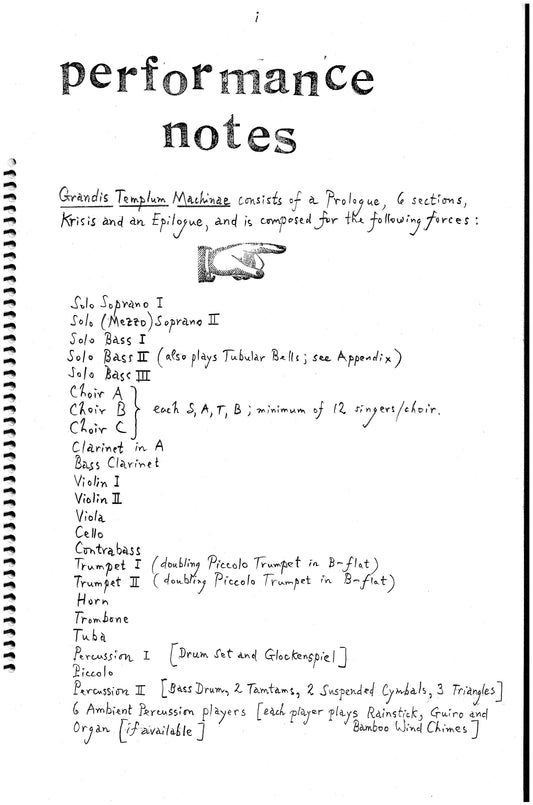 i
performance
notes
Grandis Templum Machinae consists of a Prologue, 6 sections,
Krisis and an Epilogue, and is composed for the following forces:
Solo Soprano I
Solo (Mezzo) Soprano II
Solo Bass I
Solo Bass II (also plays Tubular Bells; see Appendix)
Solo Bass III
Choir A
Choir B } each S, A, T, B; minimum of 12 singers/choir.
Choir C
Clarinet in A
Bass Clarinet
Violin I
Violin II
Viola
Cello
Contrabass
Trumpet I (doubling Piccolo Trumpet in B-flat)
Trumpet II (doubling Piccolo Trumpet in B-flat)
Horn
Trombone
Tuba
Percussion I [Drum Set and Glockenspiel]
Piccolo
Percussion II [Bass Drum, 2 Tamtams, 2 Suspended Cymbals, 3 Triangles]
6 Ambient Percussion players [each player plays Rainstick, Guiro and
Organ [if available] Bamboo Wind Chimes]